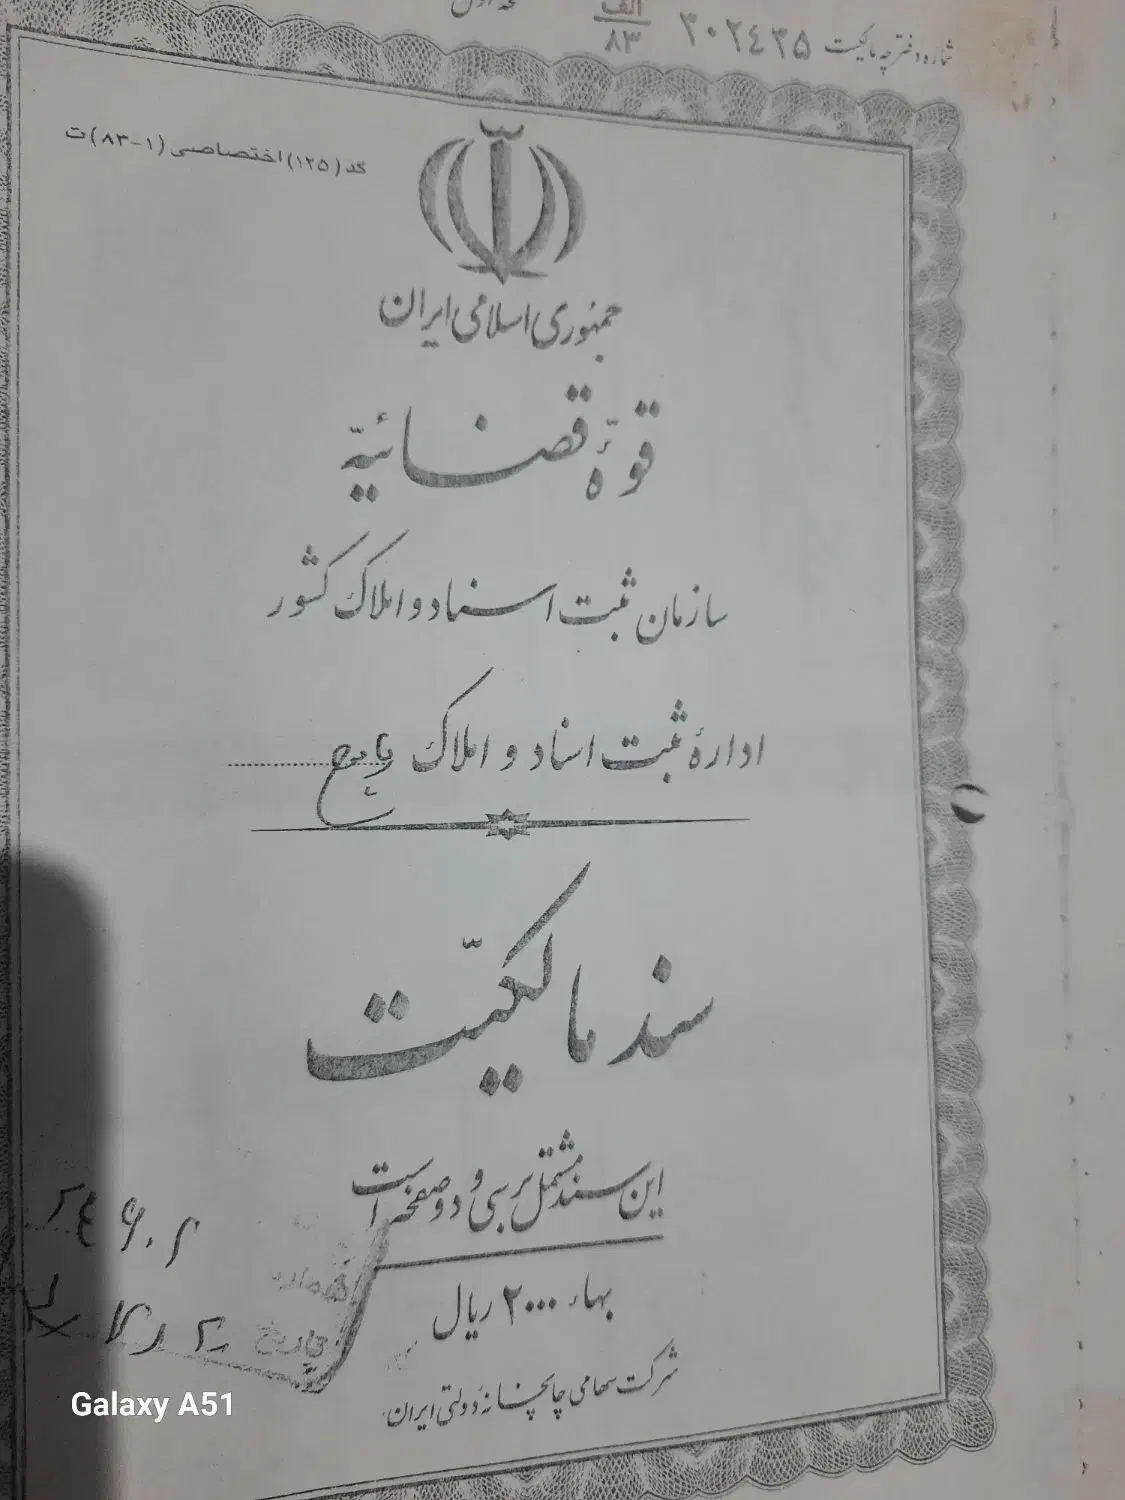 شماره دفترچه مالکیت ۳۰۲۴۲۵ الف/۸۳
کد (۱۲۵) اختصاصی (۱-۸۳) ت
جمهوری اسلامی ایران
قوهٔ قضائیّه
سازمان ثبت اسناد و املاک کشور
ادارهٔ ثبت اسناد و املاک
سند مالکیّت
این سند مشتمل بر سی و دو صفحه است
بهاء ۲۰۰۰ ریال
شماره
تاریخ
شرکت سهامی چاپخانهٔ دولتی ایران
Galaxy A51